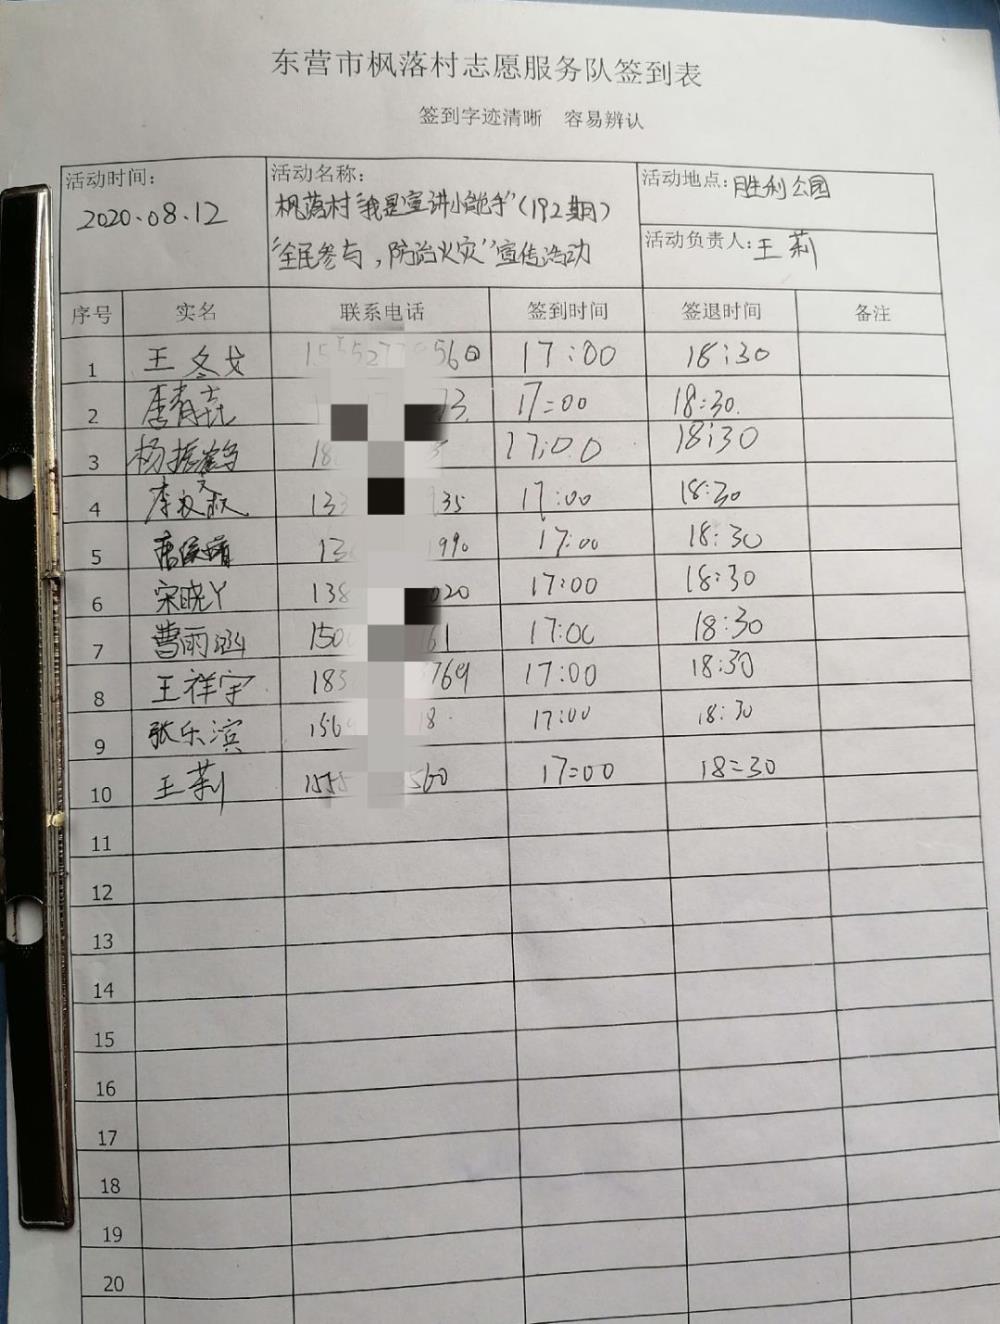 东营市枫落村志愿服务队签到表
签到字迹清晰 容易辨认
活动时间: 活动名称: 活动地点: 胜利公园
2020.08.12 枫落村“我是宣讲小能手”(192期)
“全民参与,防治火灾”宣传活动 活动负责人: 王莉
序号 实名 联系电话 签到时间 签退时间 备注
1 王冬戈 17:00 18:30
2 17:00 18:30
3 杨振鹤 17:00 18:30
4 17:00 18:30
5 1990 17:00 18:30
6 宋晓丫 138 020 17:00 18:30
7 曹雨涵 150 61 17:00 18:30
8 王祥宇 185 769 17:00 18:30
9 张乐滨 156 18 17:00 18:30
10 王莉 1555 560 17:00 18:30
11
12
13
14
15
16
17
18
19
20